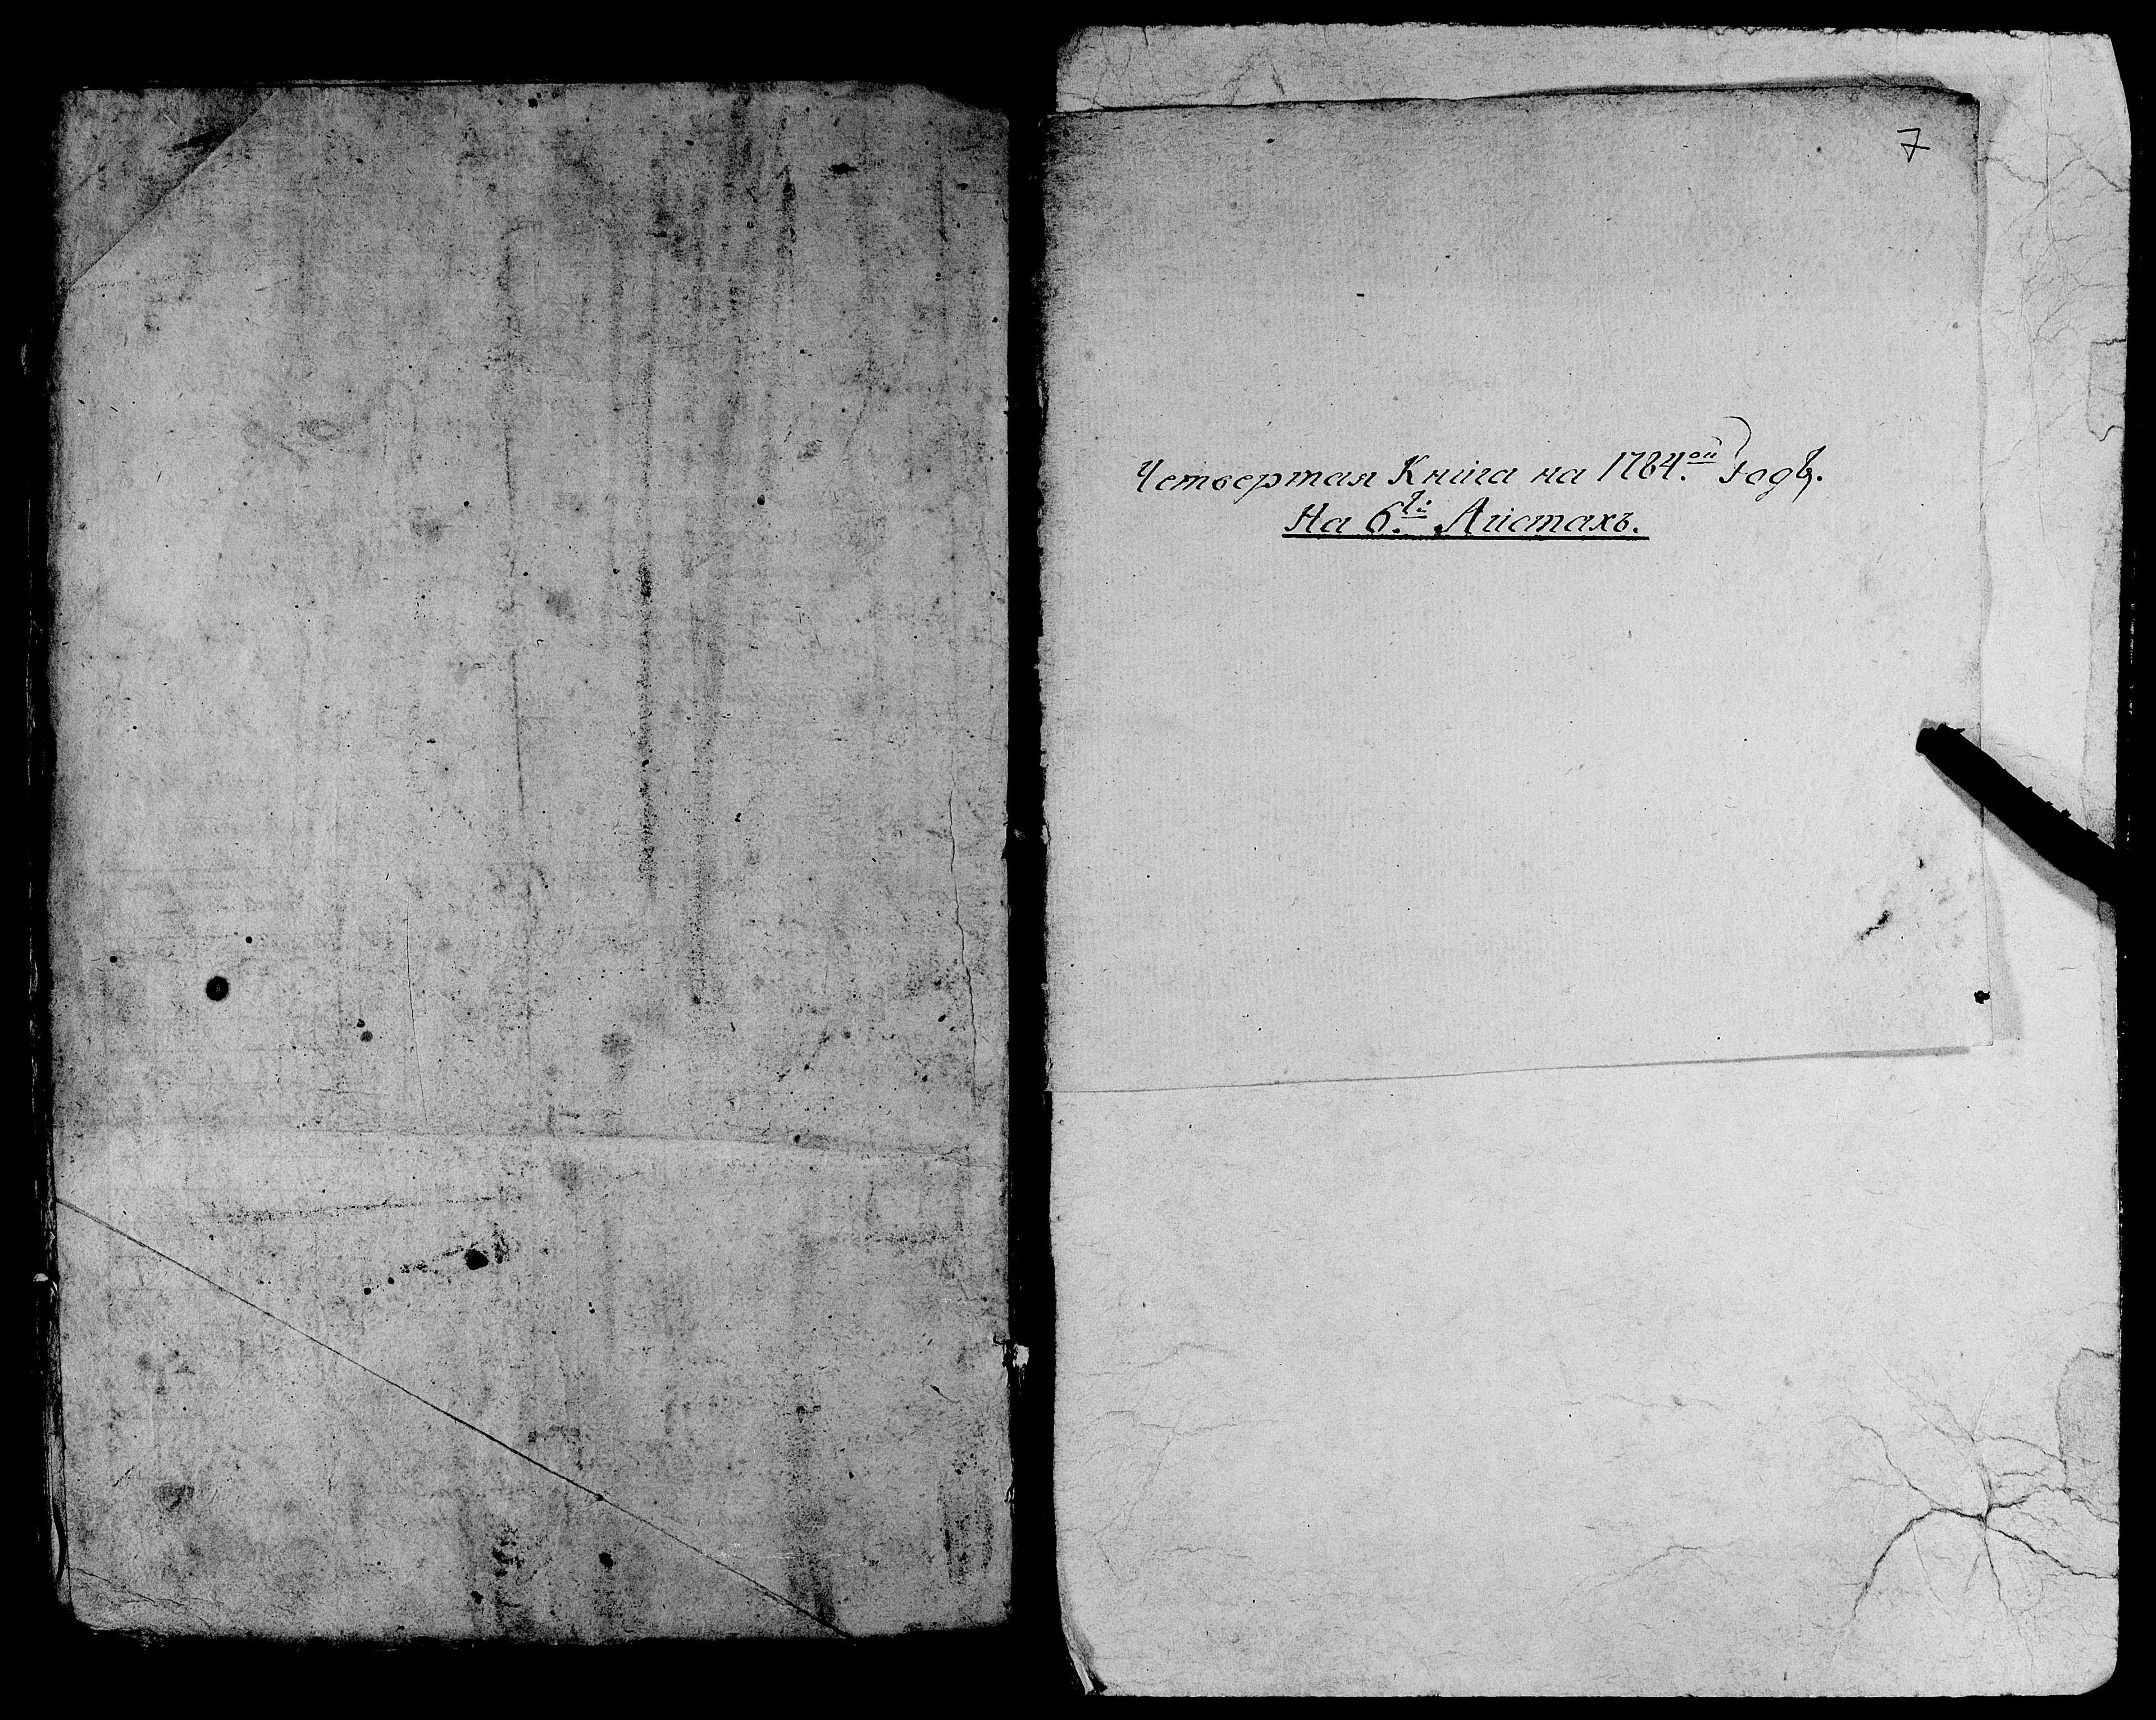 7
Четвертая Книга на 1784.ой Годъ.
На 6.ти Листахъ.